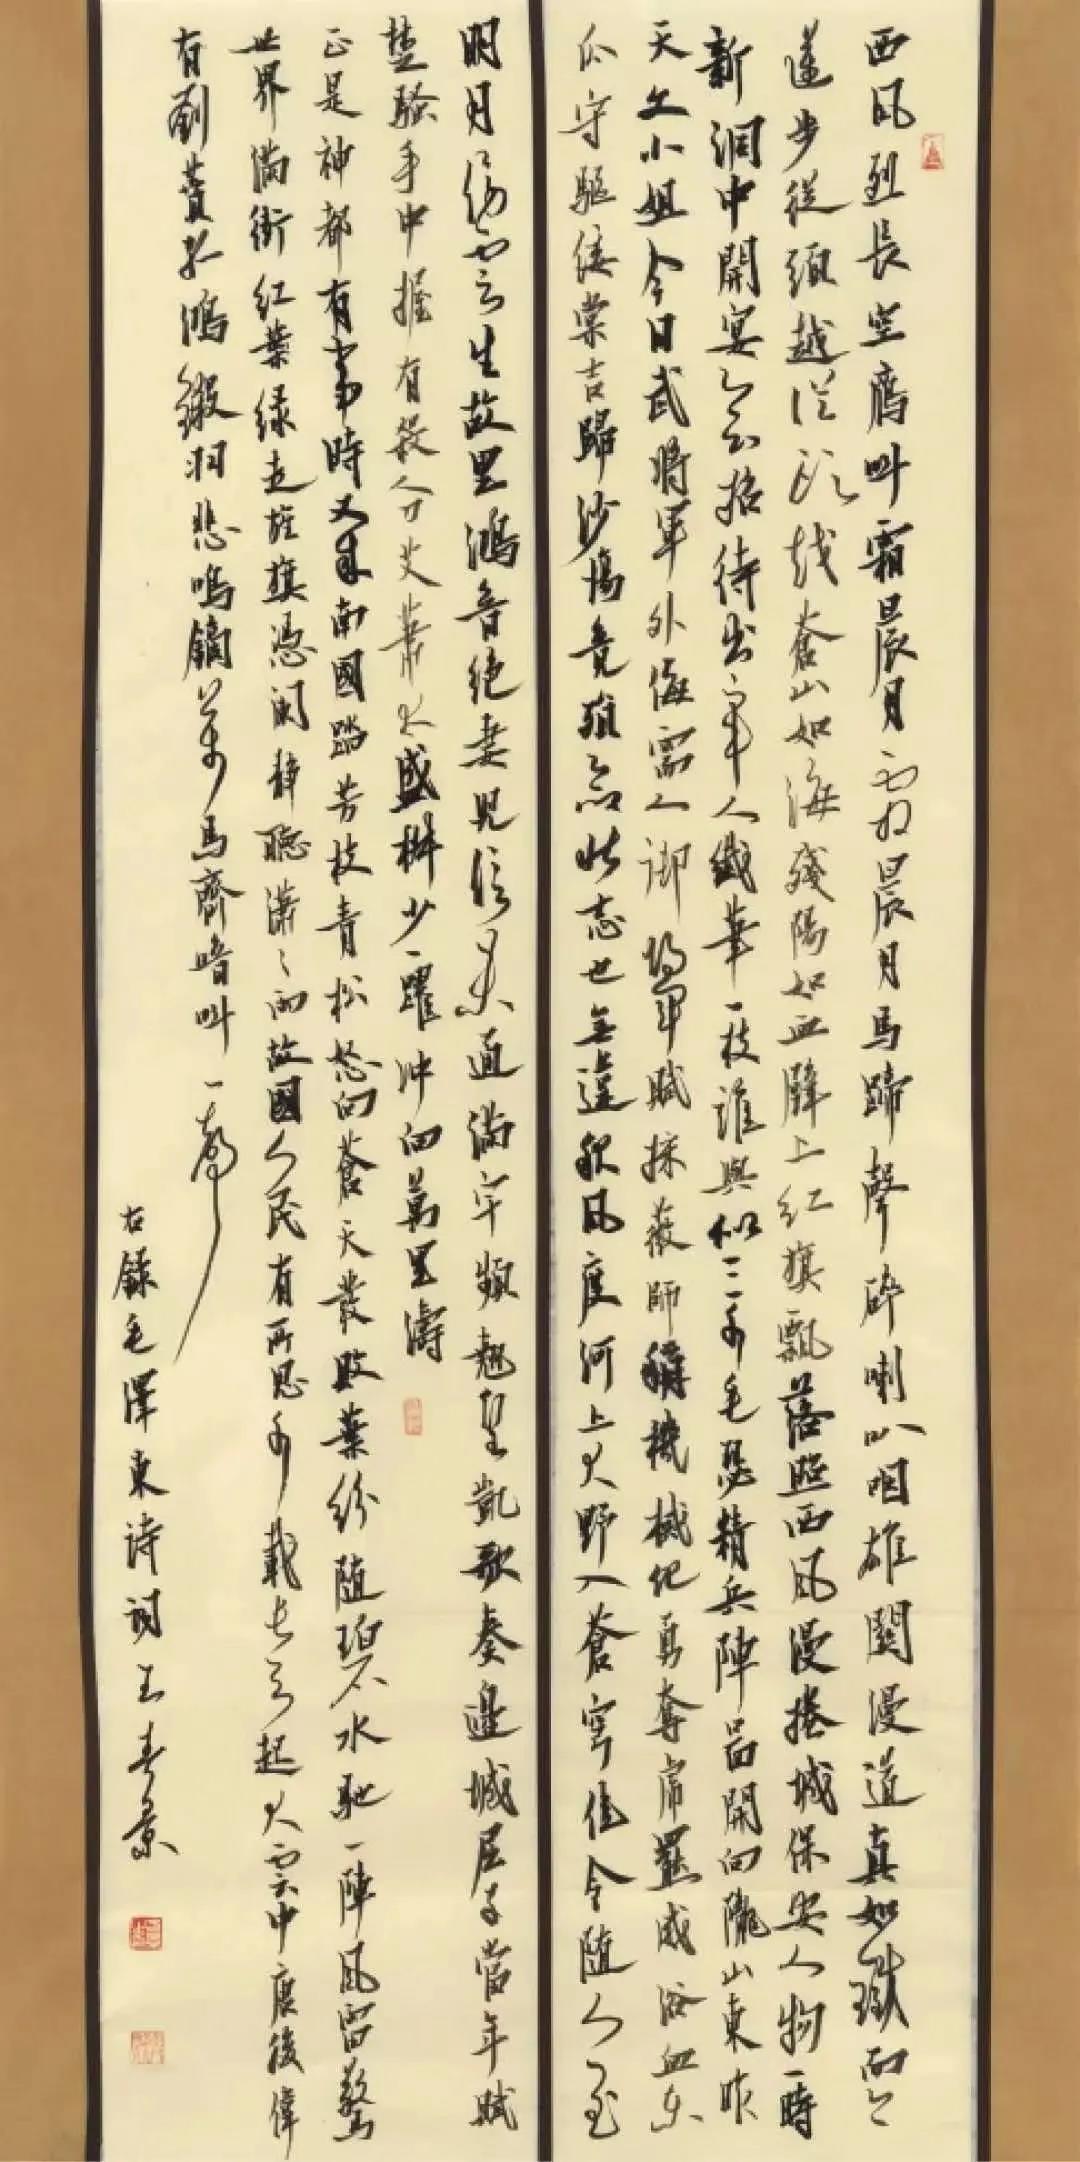 西風烈長空鴈叫霜晨月霜晨月馬蹄聲碎喇叭咽雄關漫道真如鐵而今
邁步從頭越從頭越蒼山如海殘陽如血壁上紅旗飄落照西風漫捲城保安人物一時
新洞中開宴會招待出牢人纖筆一枝誰與似三千毛瑟精兵陣啚開向隴山東昨
天文小姐今日武將軍外侮需人御將軍賦採薇師稱機械化勇奪虎羆威浴血東
瓜守驅倭棠吉歸沙場竟殞命此志也無違秋風度河上大野入蒼穹佳令隨人至
明月傍雲生故里鴻音絕妻兒信未通滿宇頻翹望凱歌奏邊城屈子當年賦
楚騷手中握有殺人刀艾蕭太盛椒少一躍沖向萬里濤
正是神都有事時又來南國踏芳枝青松怒向蒼天發敗葉紛隨碧水馳一陣風雷驚
世界滿街紅葉綠走旌旗憑闌靜聽瀟々雨故國人民有所思千載長天起大雲中唐後偉
有劉蕡孤鴻鎩羽悲鳴鏑萬馬齊喑叫一聲
右錄毛澤東詩詞王春景